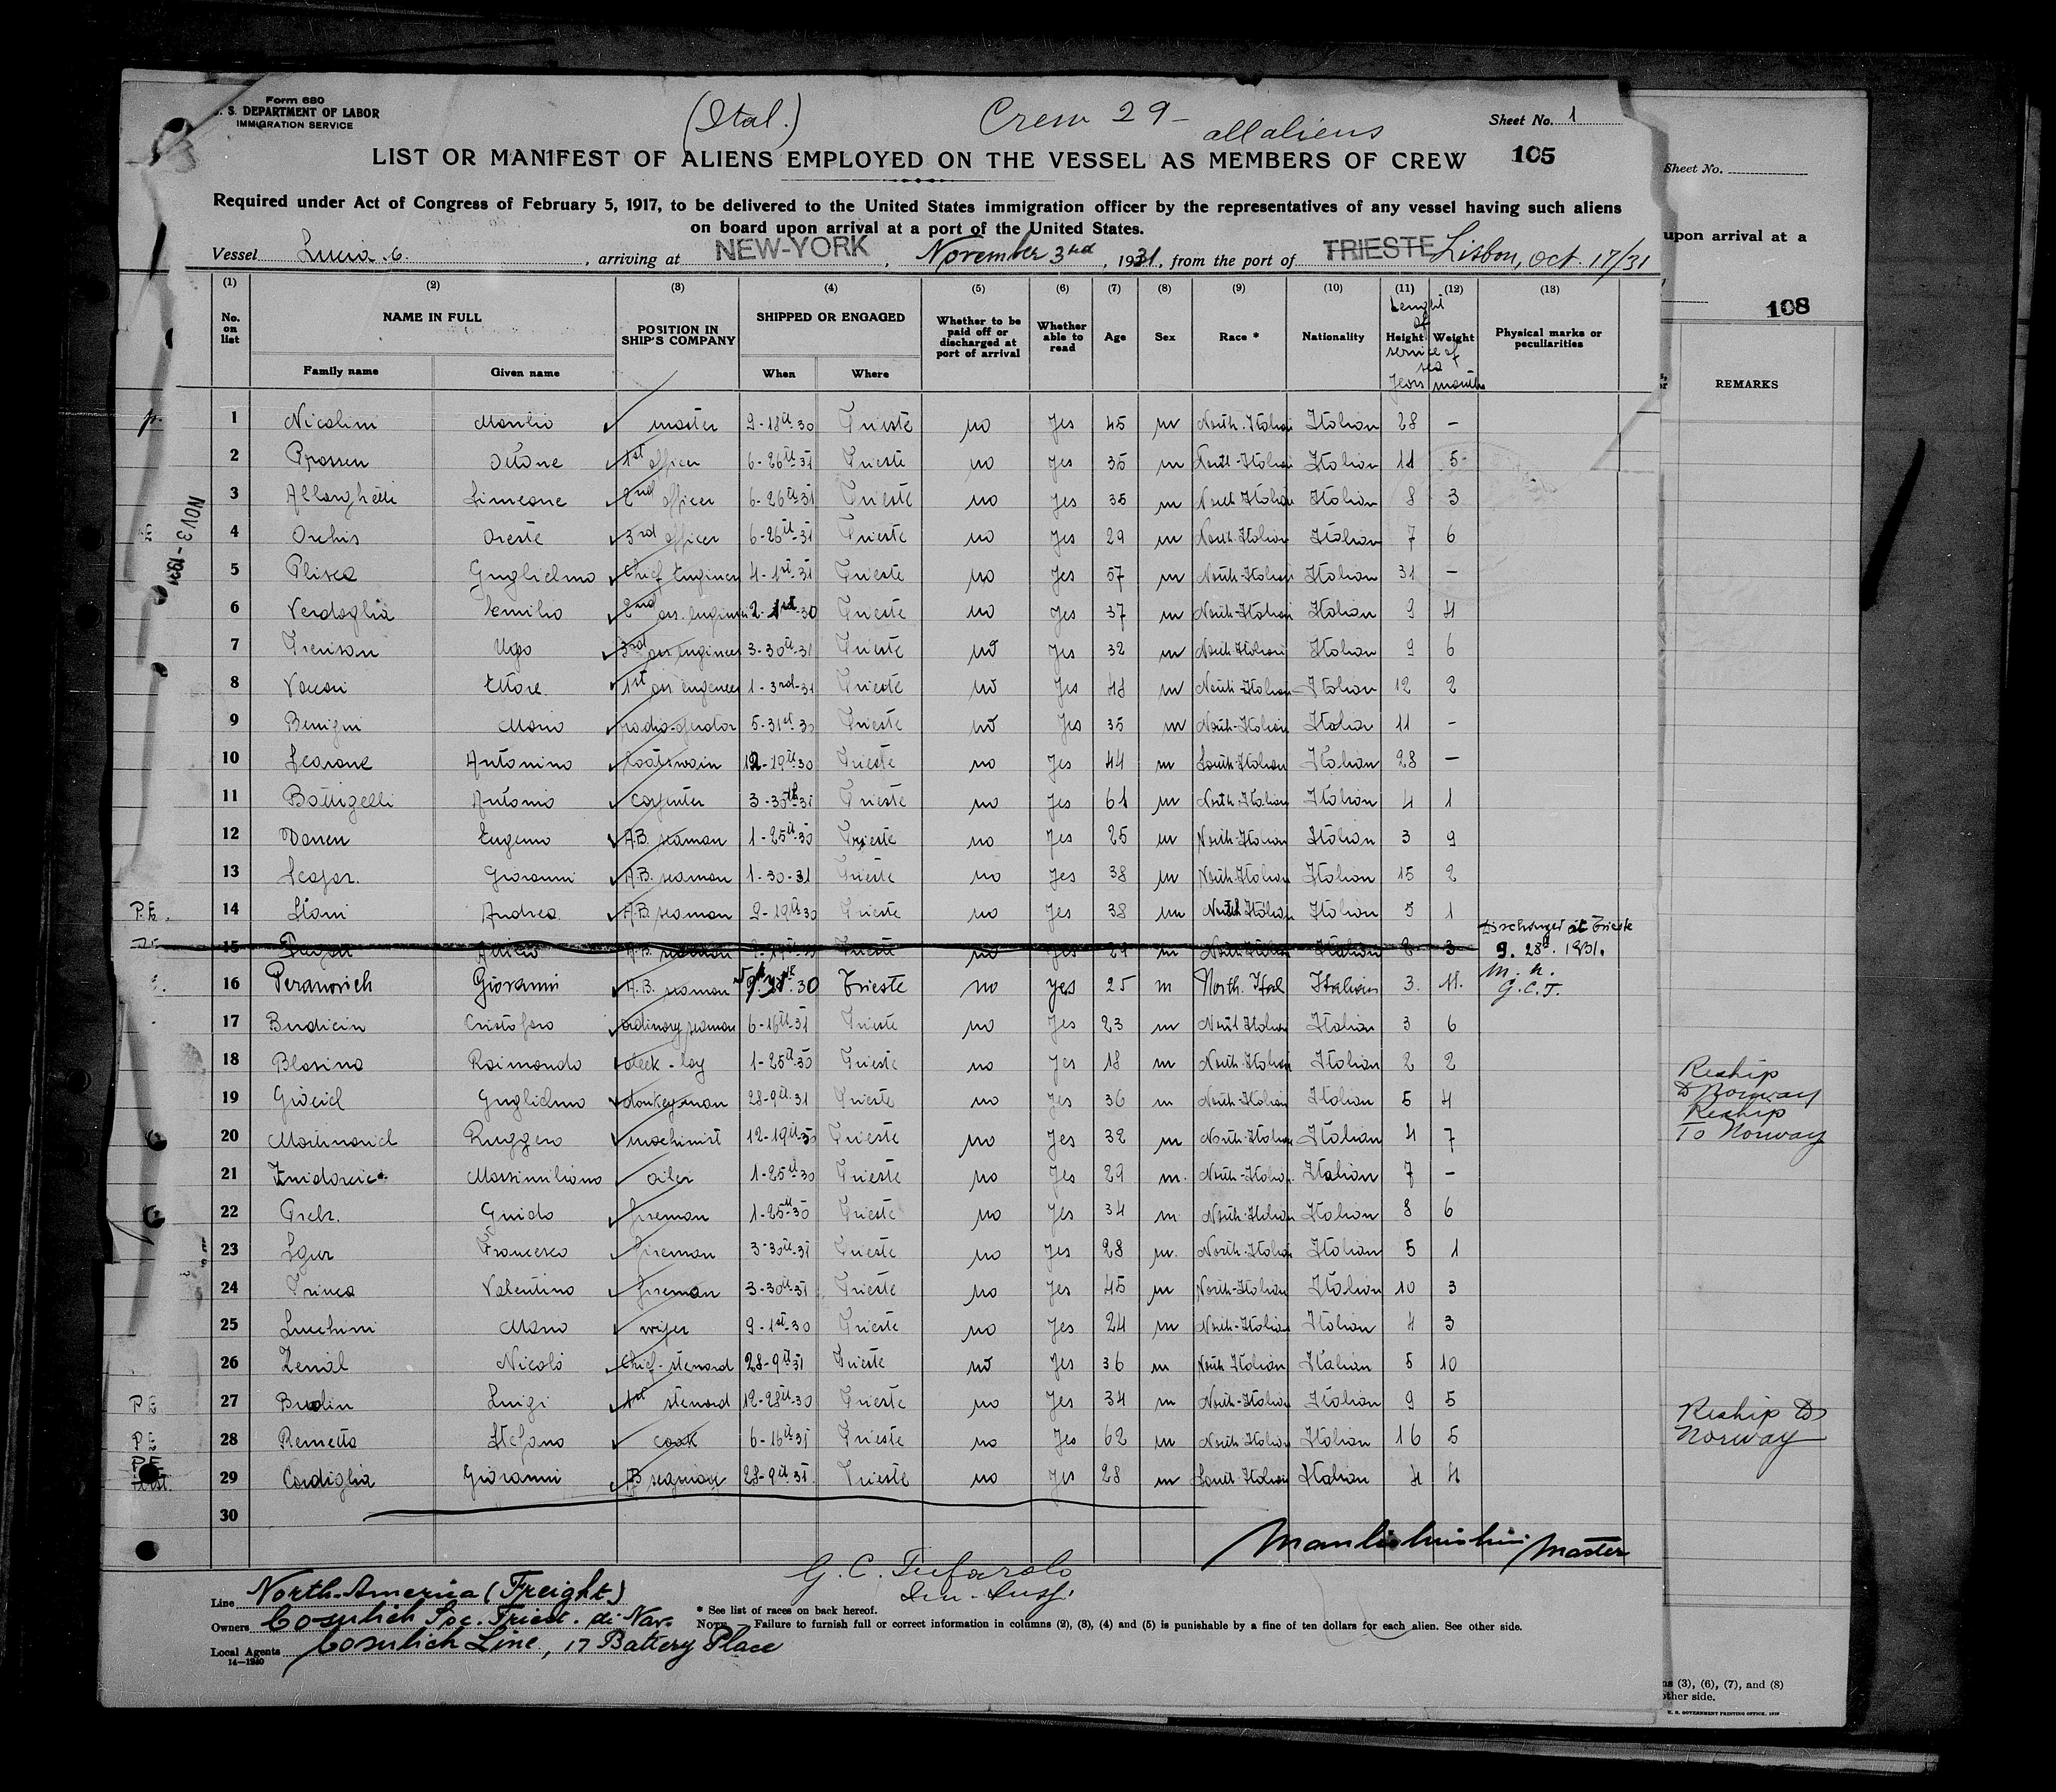 Form 680
U. S. DEPARTMENT OF LABOR
IMMIGRATION SERVICE
(Ital.)
Crew 29 -
all aliens
Sheet No. 1
LIST OR MANIFEST OF ALIENS EMPLOYED ON THE VESSEL AS MEMBERS OF CREW
105
Required under Act of Congress of February 5, 1917, to be delivered to the United States immigration officer by the representatives of any vessel having such aliens
on board upon arrival at a port of the United States.
Vessel Lucia C. , arriving at NEW-YORK , November 3rd , 1931, from the port of TRIESTE Lisbon, Oct. 17/31
(1) (2) (3) (4) (5) (6) (7) (8) (9) (10) (11) (12) (13)
No. on list NAME IN FULL Family name Given name POSITION IN SHIP'S COMPANY SHIPPED OR ENGAGED When Where Whether to be paid off or discharged at port of arrival Whether able to read Age Sex Race * Nationality Height Weight Physical marks or peculiarities
Lenght of service of sea years months
1 Nicolini Manlio master 9-18th-30 Trieste no yes 45 m North-Italian Italian 28 -
2 Prossen Ottone 1st officer 6-26th-31 Trieste no yes 35 m North-Italian Italian 11 5
3 Simeone 2nd officer 6-26th-31 Trieste no yes 35 m North Italian Italian 8 3
4 Orchis Oreste 3rd officer 6-26th-31 Trieste no yes 29 m North-Italian Italian 7 6
5 Plisca Guglielmo Chief Engineer 4-1st-31 Trieste no yes 57 m North-Italian Italian 31 -
6 Verdoglia Emilio 2nd ass. engineer 2-1st-30 Trieste no yes 37 m North-Italian Italian 9 4
7 Trenison Ugo 3rd ass engineer 3-30th-31 Trieste no yes 32 m North Italian Italian 9 6
8 Ettore 1st ass engeneer 1-3rd-31 Trieste no yes m North-Italian Italian 12 2
9 Benigni Mario radio-operator 5-31st-30 Trieste no yes 35 m North-Italian Italian 11 -
10 Scarone Antonino boatswain 12-19th-30 Trieste no yes 44 m South-Italian Italian 28 -
11 Bottigelli Antonio carpenter 3-30th-31 Trieste no yes 61 m North-Italian Italian 4 1
12 Eugenio A.B. seaman 1-25th-30 Trieste no yes 25 m North-Italian Italian 3 9
13 Giovanni A.B. seaman 1-30-31 Trieste no yes 38 m North-Italian Italian 15 2
P.E. 14 Stani Andrea A.B. seaman 9-19th-30 Trieste no yes 38 m North Italian Italian 5 1
15 A.B. seaman Trieste no yes 29 m North-Italian Italian 8 3 Discharged at Trieste 9. 28th. 1931.
16 Peranovich Giovanni A.B. seaman 30 Trieste no yes 25 m North. Ital Italian 3. 11. M. N. G.C.T.
17 Budicin Cristoforo ordinary seaman 6-16th-31 Trieste no yes 23 m North Italian Italian 3 6
18 Blasina Raimondo deck-boy 1-25th-30 Trieste no yes 18 m North-Italian Italian 2 2
19 Guglielmo donkeyman 28-9th-31 Trieste no yes 36 m North-Italian Italian 5 4
20 Martinovich Ruggero machinist 12-19th-30 Trieste no yes 32 m North-Italian Italian 4 7
21 Massimiliano oiler 1-25th-30 Trieste no yes 29 m. North-Italian Italian 7 -
22 Guido fireman 1-25th-30 Trieste no yes 34 m North-Italian Italian 8 6
23 Sgur Francesco fireman 3-30th-31 Trieste no yes 28 m. North-Italian Italian 5 1
24 Trinca Valentino fireman 3-30th-31 Trieste no yes 45 m North-Italian Italian 10 3
25 Lucchini Mario wiper 9-1st-30 Trieste no yes 24 m North-Italian Italian 4 3
26 Nicolò Chief-steward 28-9th-31 Trieste no yes 36 m North Italian Italian 5 10
PE 27 Budin Luigi 1st steward 12-28th-30 Trieste no yes 34 m North-Italian Italian 9 5
PE 28 Remetta Stefano cook 6-16th-31 Trieste no yes 62 m North-Italian Italian 16 5
PE 29 Cordiglia Giovanni AB seaman 28-9th-31 Trieste no yes 28 m South-Italian Italian 4 4
30
Master
G. C. Tufarolo
Imm. Insp.
Line North-America (Freight)
Owners Cosulich Soc. Triest. di Nav.
Local Agents Cosulich Line, 17 Battery Place
14-1240
* See list of races on back hereof.
NOTE.—Failure to furnish full or correct information in columns (2), (3), (4) and (5) is punishable by a fine of ten dollars for each alien. See other side.
NOV 3 - 1931
Sheet No.
upon arrival at a
108
REMARKS
Reship
to Norway
Reship
To Norway
Reship to
Norway
ns (3), (6), (7), and (8)
other side.
U. S. GOVERNMENT PRINTING OFFICE